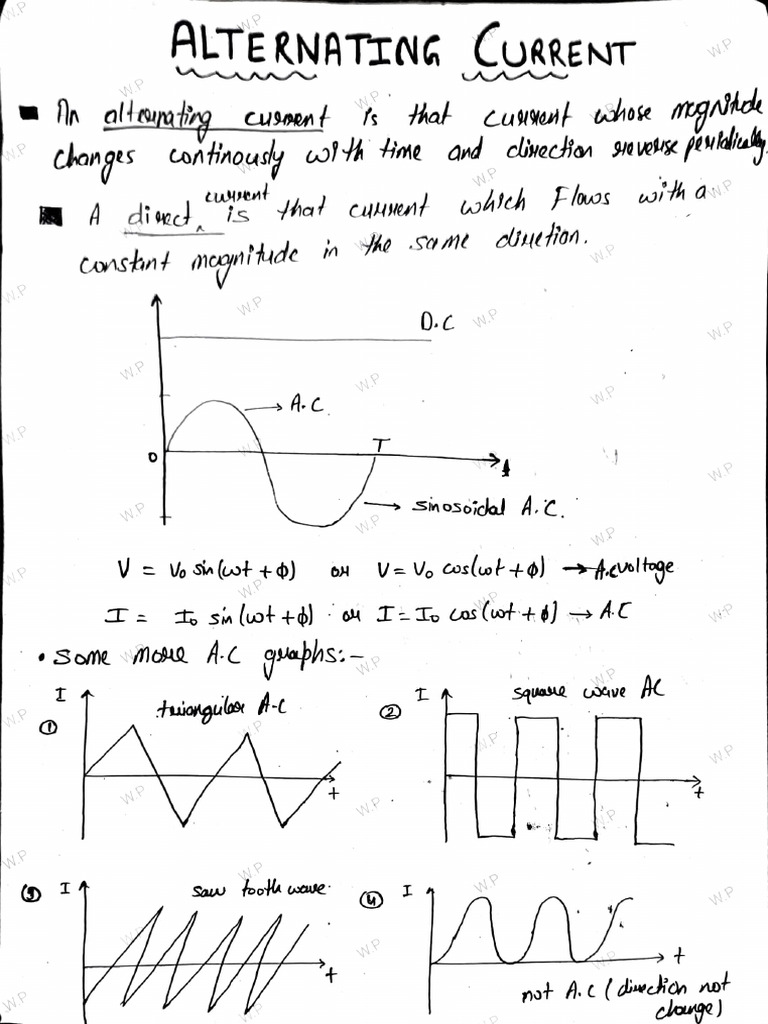 ALTERNATING CURRENT
An alternating current is that current whose magnitude
changes continously with time and direction reverse periodically.
A direct current is that current which Flows with a
constant magnitude in the same direction.
D.C
A.C
0
T
t
sinosoidal A.C.
V = V₀ sin(ωt + ϕ) or V = V₀ cos(ωt + ϕ) → A.C voltage
I = I₀ sin(ωt + ϕ) or I = I₀ cos(ωt + ϕ) → A.C
• Some more A.C graphs:-
① I triangular A-C
t
② I square wave AC
t
③ I saw tooth wave
t
④ I
t
not A.C (direction not
change)
W.P